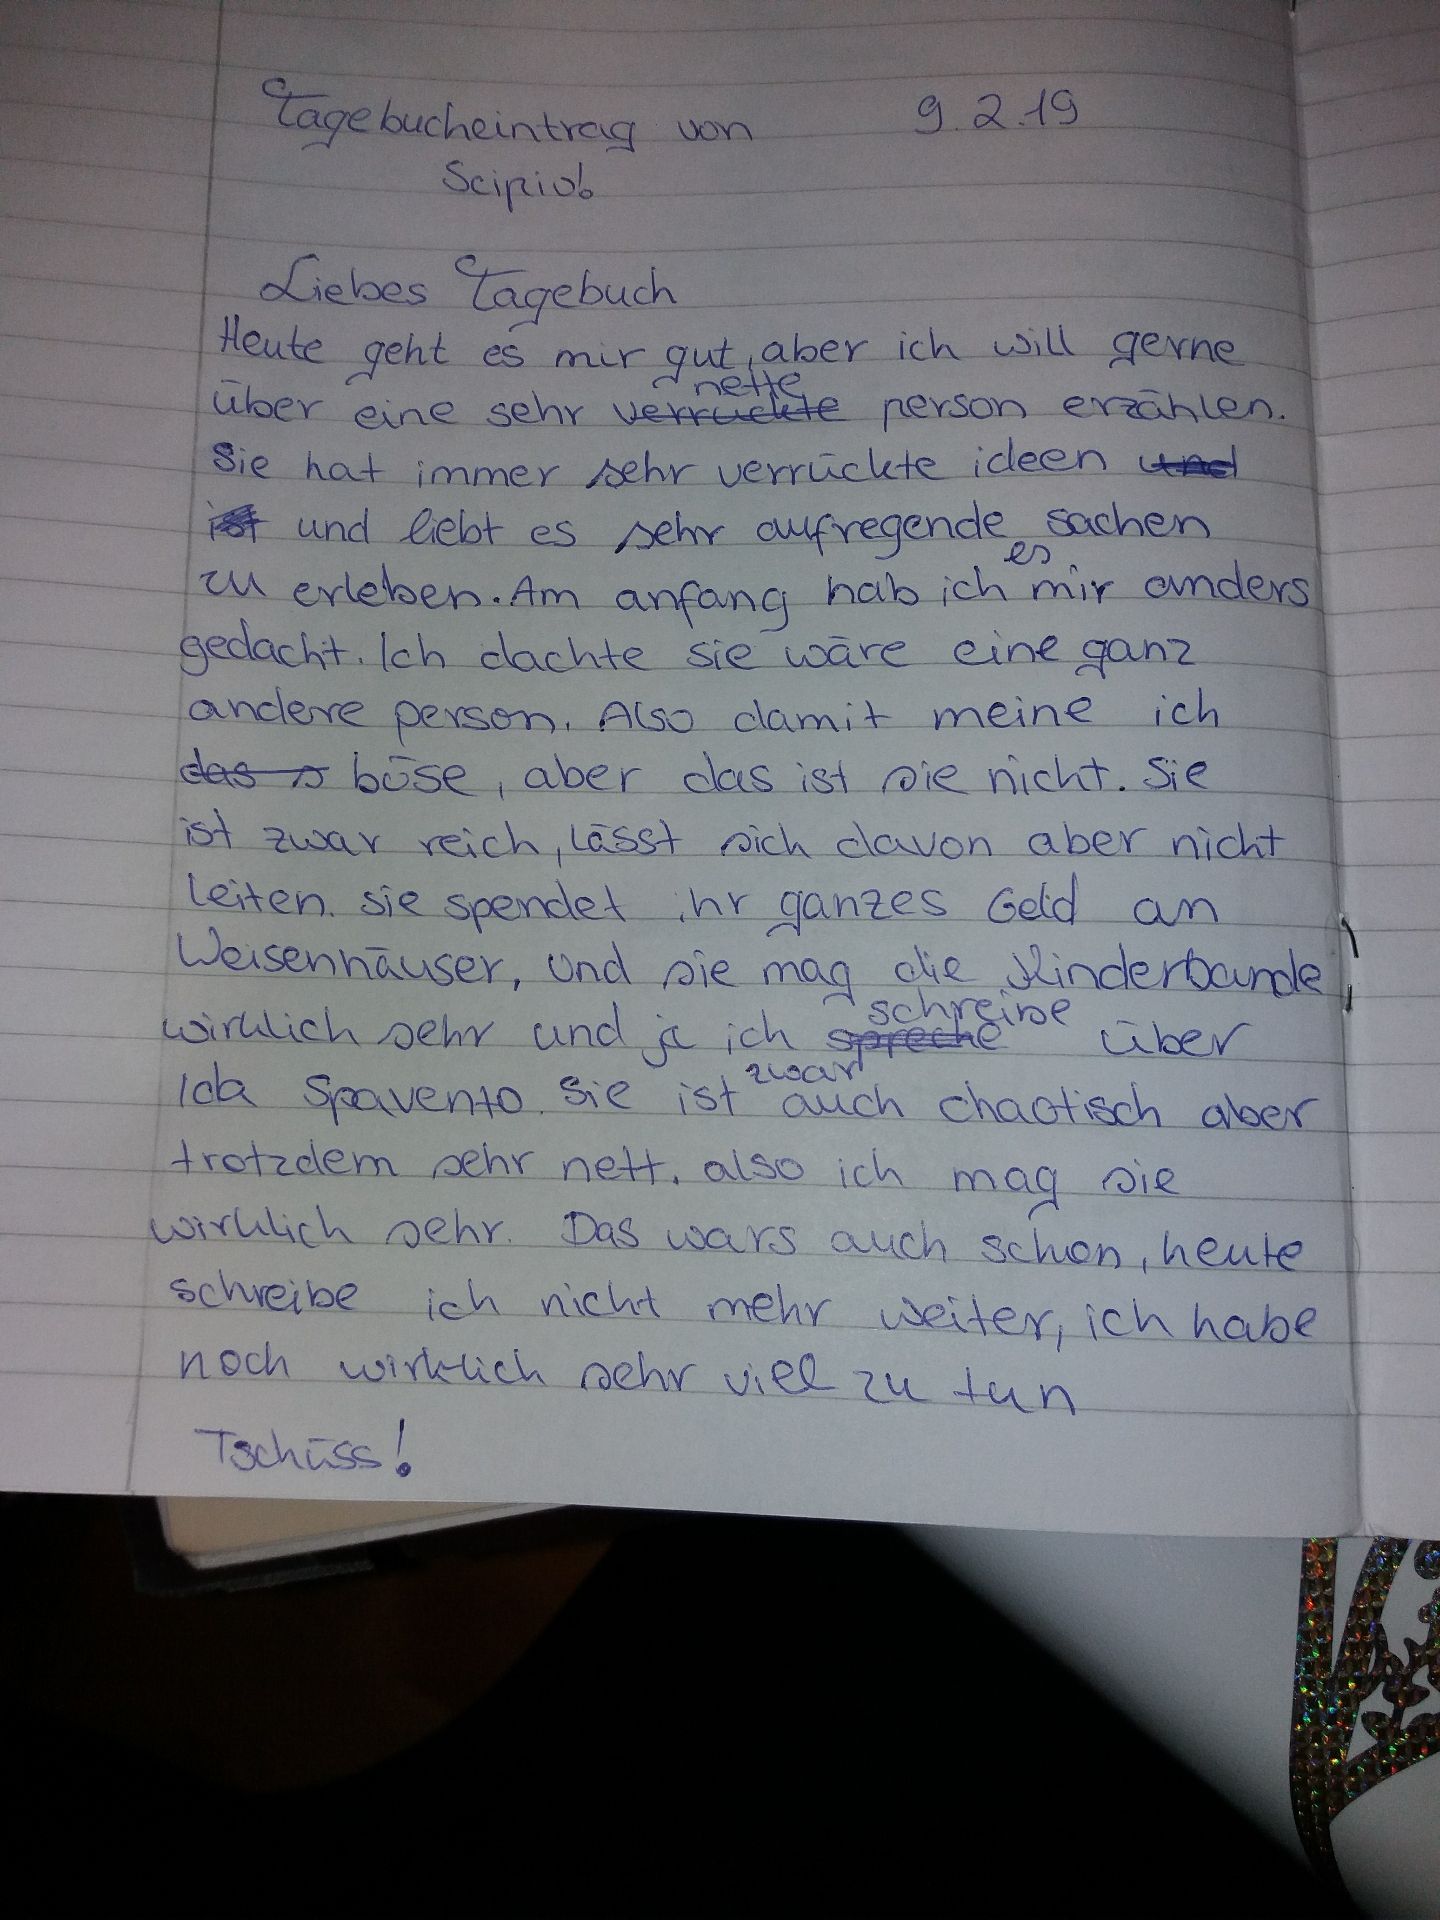 Tagebucheintrag von 9.2.19
Scipio
Liebes Tagebuch
Heute geht es mir gut, aber ich will gerne
über eine sehr verrückte nette person erzählen.
Sie hat immer sehr verrückte ideen und
ist und liebt es sehr aufregende sachen
zu erleben. Am anfang hab ich es mir anders
gedacht. Ich dachte sie wäre eine ganz
andere person. Also damit meine ich
das s böse, aber das ist sie nicht. Sie
ist zwar reich, lässt sich davon aber nicht
leiten. sie spendet ihr ganzes Geld an
Weisenhäuser, und sie mag die Kinderbande
wirklich sehr und ja ich spreche schreibe über
Ida Spavento. Sie ist zwar auch chaotisch aber
trotzdem sehr nett. also ich mag sie
wirklich sehr. Das wars auch schon, heute
schreibe ich nicht mehr weiter, ich habe
noch wirklich sehr viel zu tun
Tschüss!